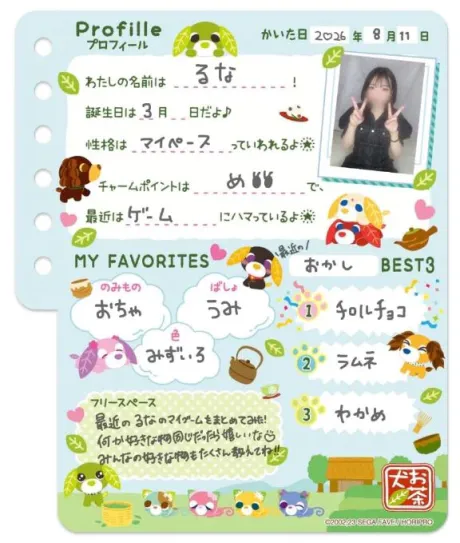 Profille
プロフィール
かいた日 2026 年 8 月 11 日
わたしの名前は るな !
誕生日は 3 月 日だよ♪
性格は マイペース っていわれるよ
チャームポイントは め で、
最近は ゲーム にハマっているよ
MY FAVORITES
のみもの
おちゃ
ばしょ
うみ
色
みずいろ
最近の!
おかし BEST3
1 チロルチョコ
2 ラムネ
3 わかめ
フリースペース
最近のるなのマイブームをまとめてみた!
何か好きな物同じだったら嬉しいな
みんなの好きな物もたくさん教えてね!!
お茶犬
©2002,23 SEGA FAVE / HORIPRO